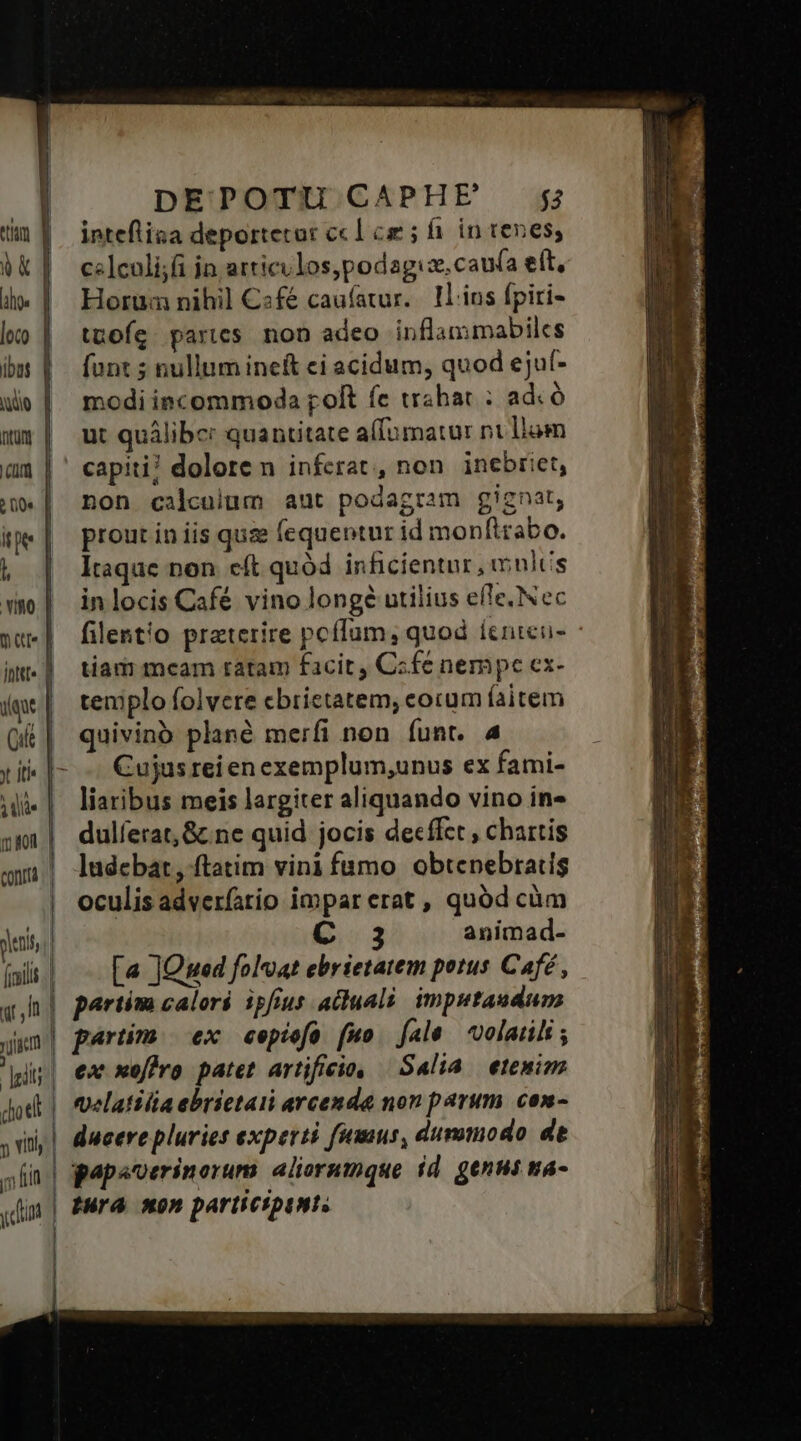 DE POTU CAPHE' 53
intestina deportetur colicæ; si in renes,
calculi; si in articulos, podagræ, causa est.
Horum nihil Café causatur. Illius spiri-
tuosæ partes non adeo inflammabiles
sunt; nullum inest ei acidum, quod ejus-
modi incommoda post se trahat: adeò
ut quâlibet quantitate assumatur nullum
capiti dolorem inferat, non inebriet,
non calculum aut podagram gignat,
prout in iis quæ sequentur id monstrabo.
Itaque non est quòd inficientur, multis
in locis Café vino longè utilius esse. Nec
silentio præterire possum, quod senten-
tiam meam ratam facit, Café nempe ex-
templo solvere ebrietatem, eorum saltem
qui vinò planè mersi non sunt. a
Cujus rei en exemplum, unus ex fami-
liaribus meis largiter aliquando vino in-
dulserat, & ne quid jocis deesset, chartis
ludebat, statim vini fumo obtenebratis
oculis adversario impar erat, quòd cùm
C 3 animad-
[a] Quod solvat ebrietatem potus Café,
partim calori ipsius actuali imputandum
partim ex copioso suo sale volatili;
ex nostro patet artificio, Salia etenim
volatilia ebrietati arcenda non parum con-
ducere pluries experti sumus, dummodo de
papaverinorum aliorumque id genus na-
tura non participent.